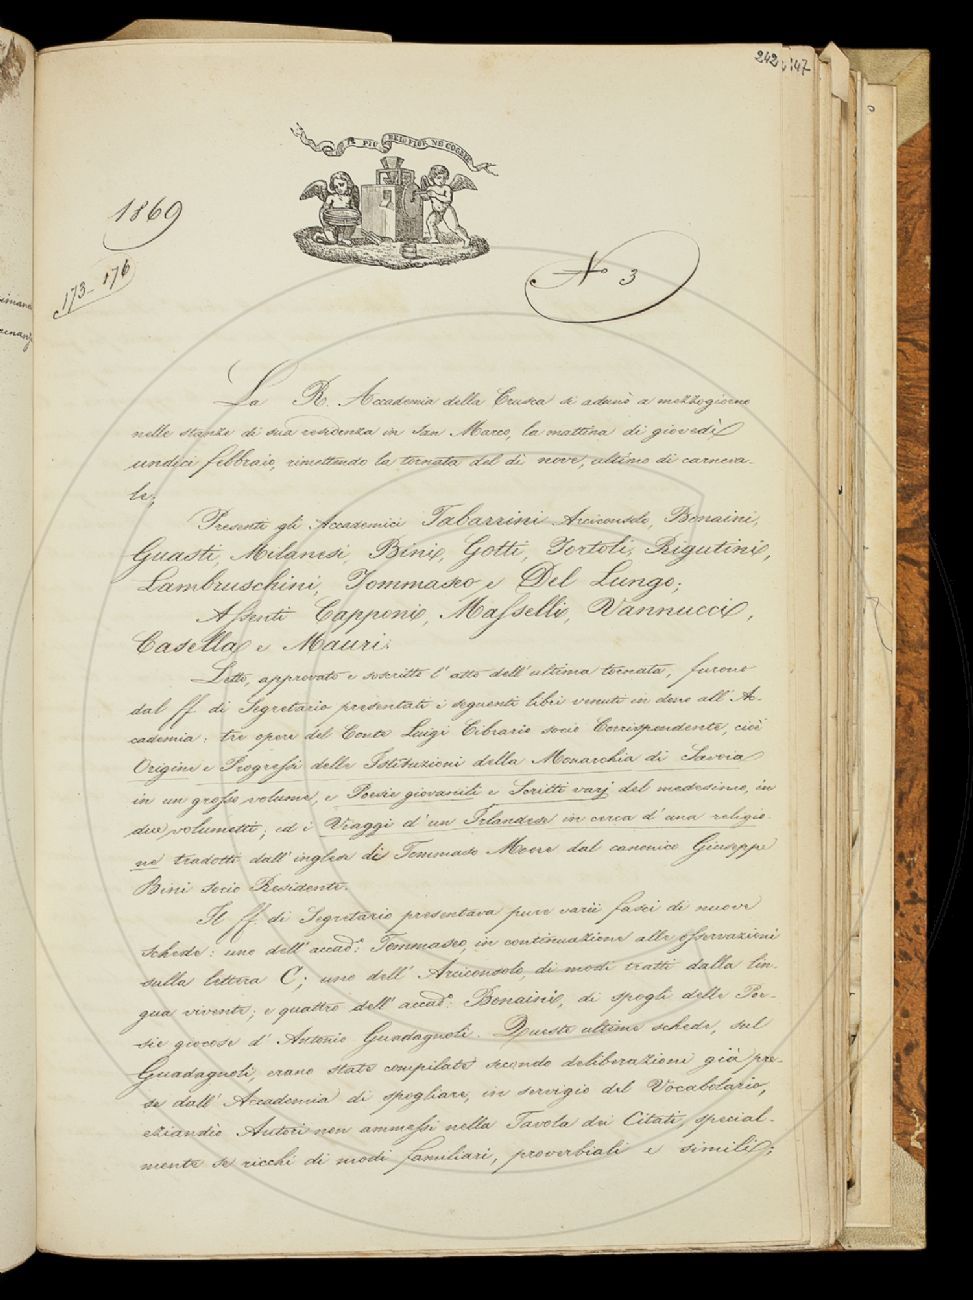 242 147
IL PIÙ BEL FIOR NE COGLIE
1869
173-176
N.o 3
La R. Accademia della Crusca si adunò a mezzogiorno
nelle stanze di sua residenza in San Marco, la mattina di giovedì
undici febbraio, rimettendo la tornata del dì nove, ultimo di carneva-
le;
Presenti gli Accademici Tabarrini Arciconsolo, Bonaini,
Guasti, Milanesi, Bini, Gotti, Tortoli, Rigutini,
Lambruschini, Tommaseo e Del Lungo;
Assenti Capponi, Masselli, Vannucci,
Casella e Mauri.
Letto, approvato e soscritto l'atto dell'ultima tornata, furono
dal ff. di Segretario presentati i seguenti libri venuti in dono all'Ac-
cademia: tre opere del Conte Luigi Cibrario socio Corrispondente, cioè
Origine e Progressi delle Istituzioni della Monarchia di Savoia
in un grosso volume, e Poesie giovanili e Scritti varj del medesimo, in
due volumetti; ed i Viaggi d'un Irlandese in cerca d'una religio-
ne tradotti dall'inglese di Tommaso Moore dal canonico Giuseppe
Bini socio Residente.
Il ff. di Segretario presentava pure varii fasci di nuove
schede: uno dell'accad.o Tommaseo, in continuazione alle osservazioni
sulla lettera C; uno dell'Arciconsolo, di modi tratti dalla lin-
gua vivente; e quattro dell'accad.o Bonaini, di spogli delle Poe-
sie giocose d'Antonio Guadagnoli. Queste ultime schede, sul
Guadagnoli, erano state compilate secondo deliberazioni già pre-
se dall'Accademia di spogliare, in servigio del Vocabolario,
eziandio Autori non ammessi nella Tavola dei Citati, special-
mente se ricchi di modi familiari, proverbiali e simili;